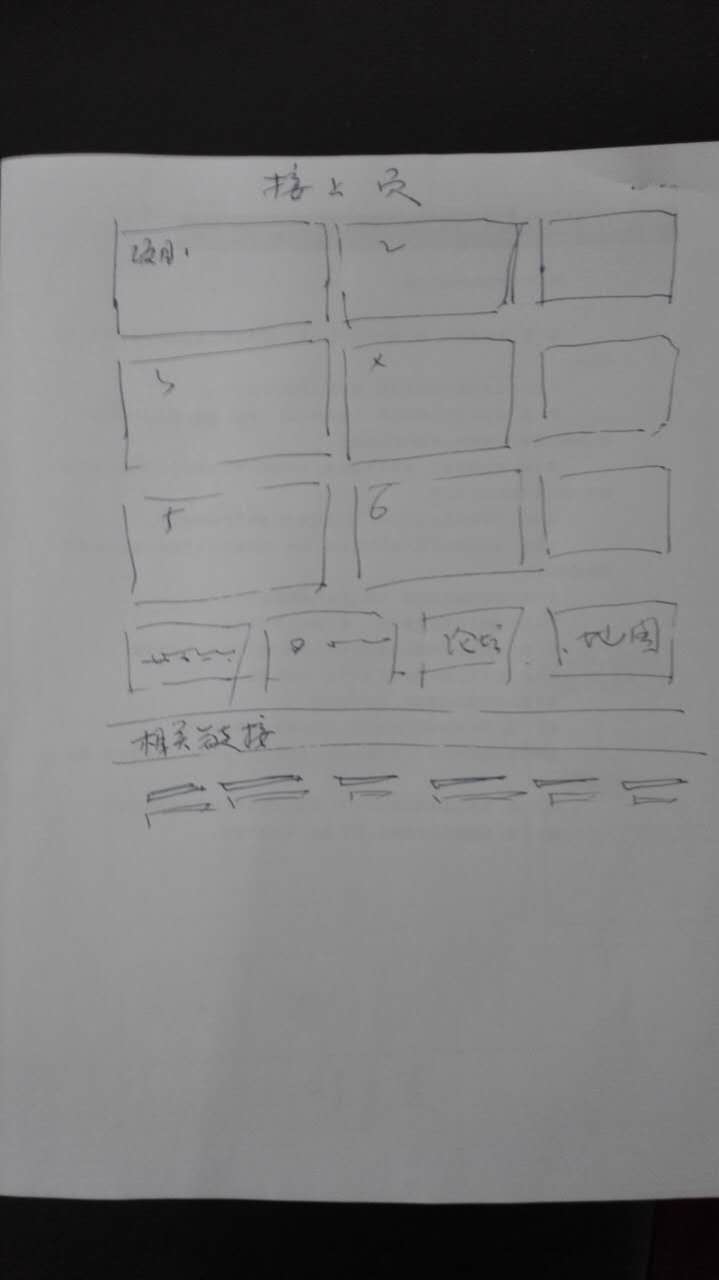 接上页
项目1 2
3 4
5 6
论坛 地图
相关链接